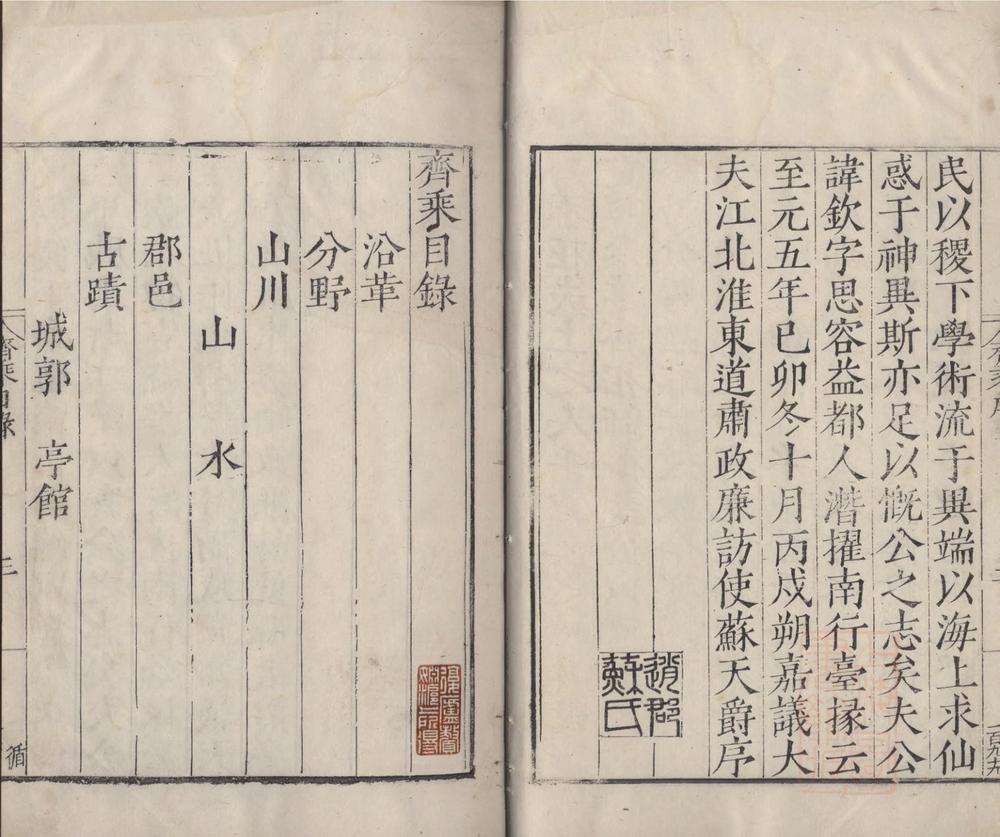 民以稷下學術流于異端以海上求仙
惑于神異斯亦足以慨公之志矣夫公
諱欽字思容益都人潛擢南行臺掾云
至元五年已卯冬十月丙戍朔嘉議大
夫江北淮東道肅政廉訪使蘇天爵序
趙郡
蘇氏
齊乘目錄
沿革
分野
山川
山 水
郡邑
古蹟
城郭 亭館
齊乘目錄
三
循